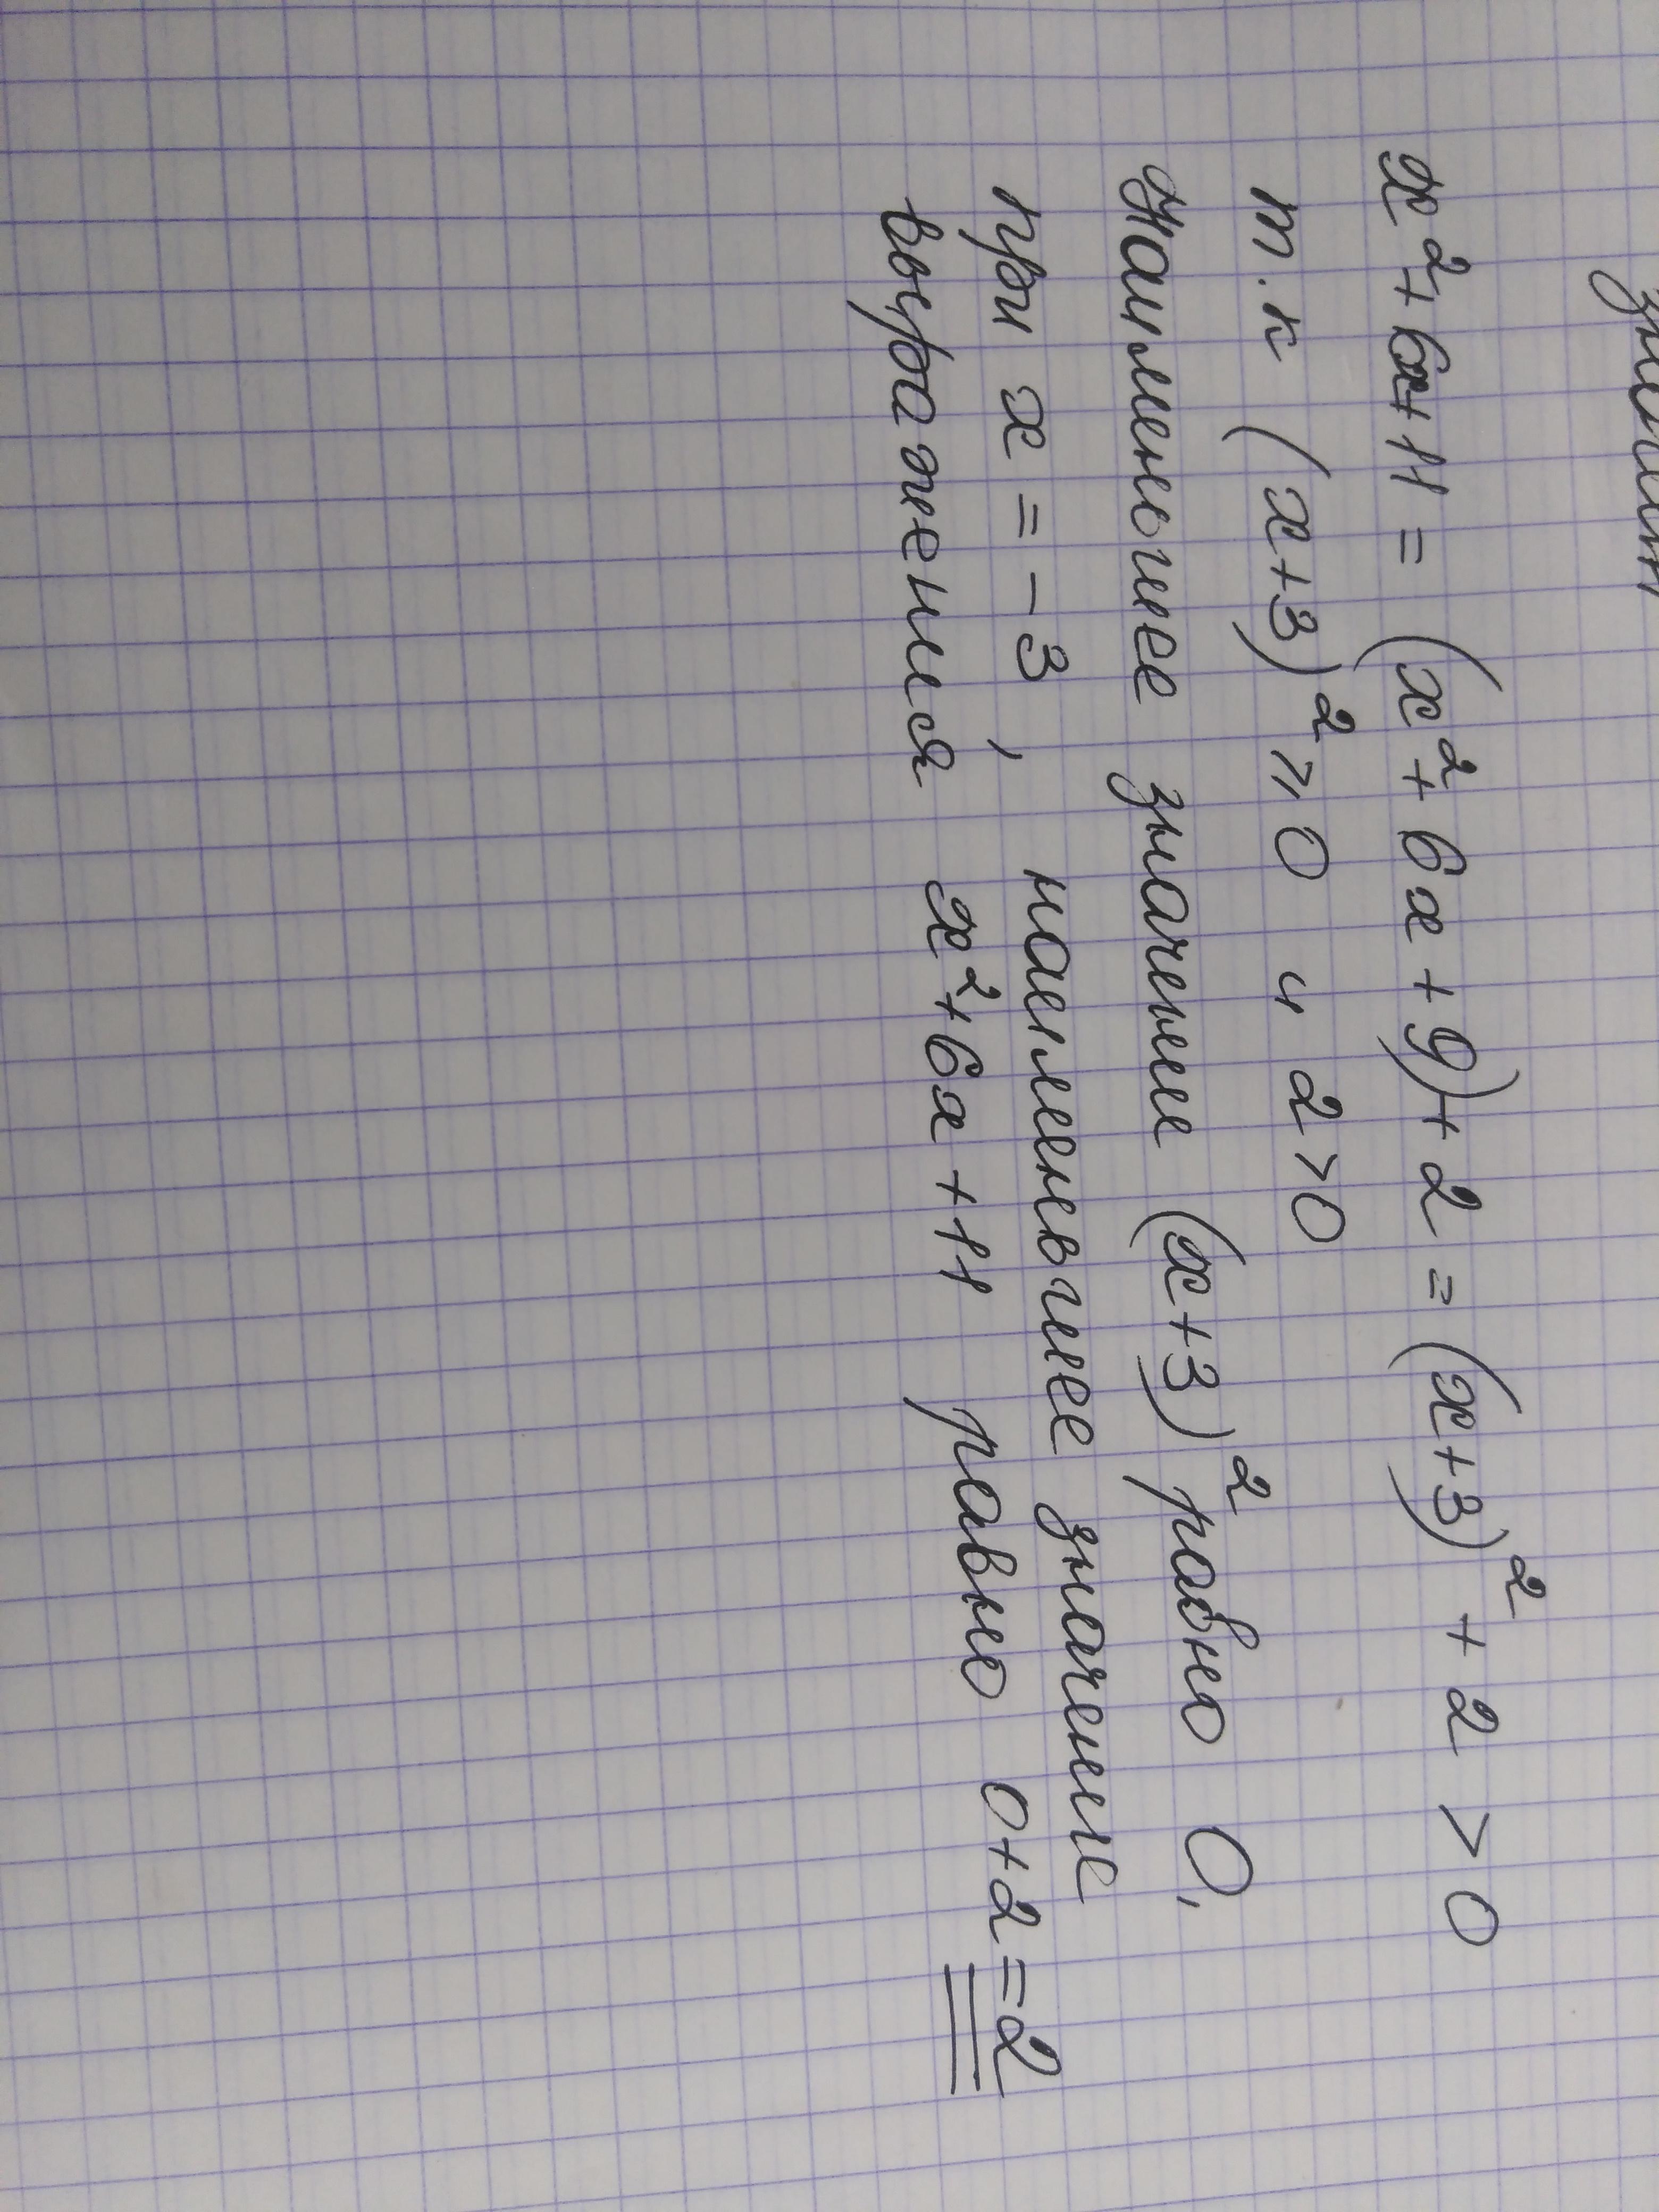 x² + 6x + 11 = (x² + 6x + 9) + 2 = (x+3)² + 2 > 0
т.к (x+3)² ⩾ 0 и 2 > 0
Наименьшее значение (x+3)² равно 0,
при x = -3, наименьшее значение
выражения x² + 6x + 11 равно 0+2=2